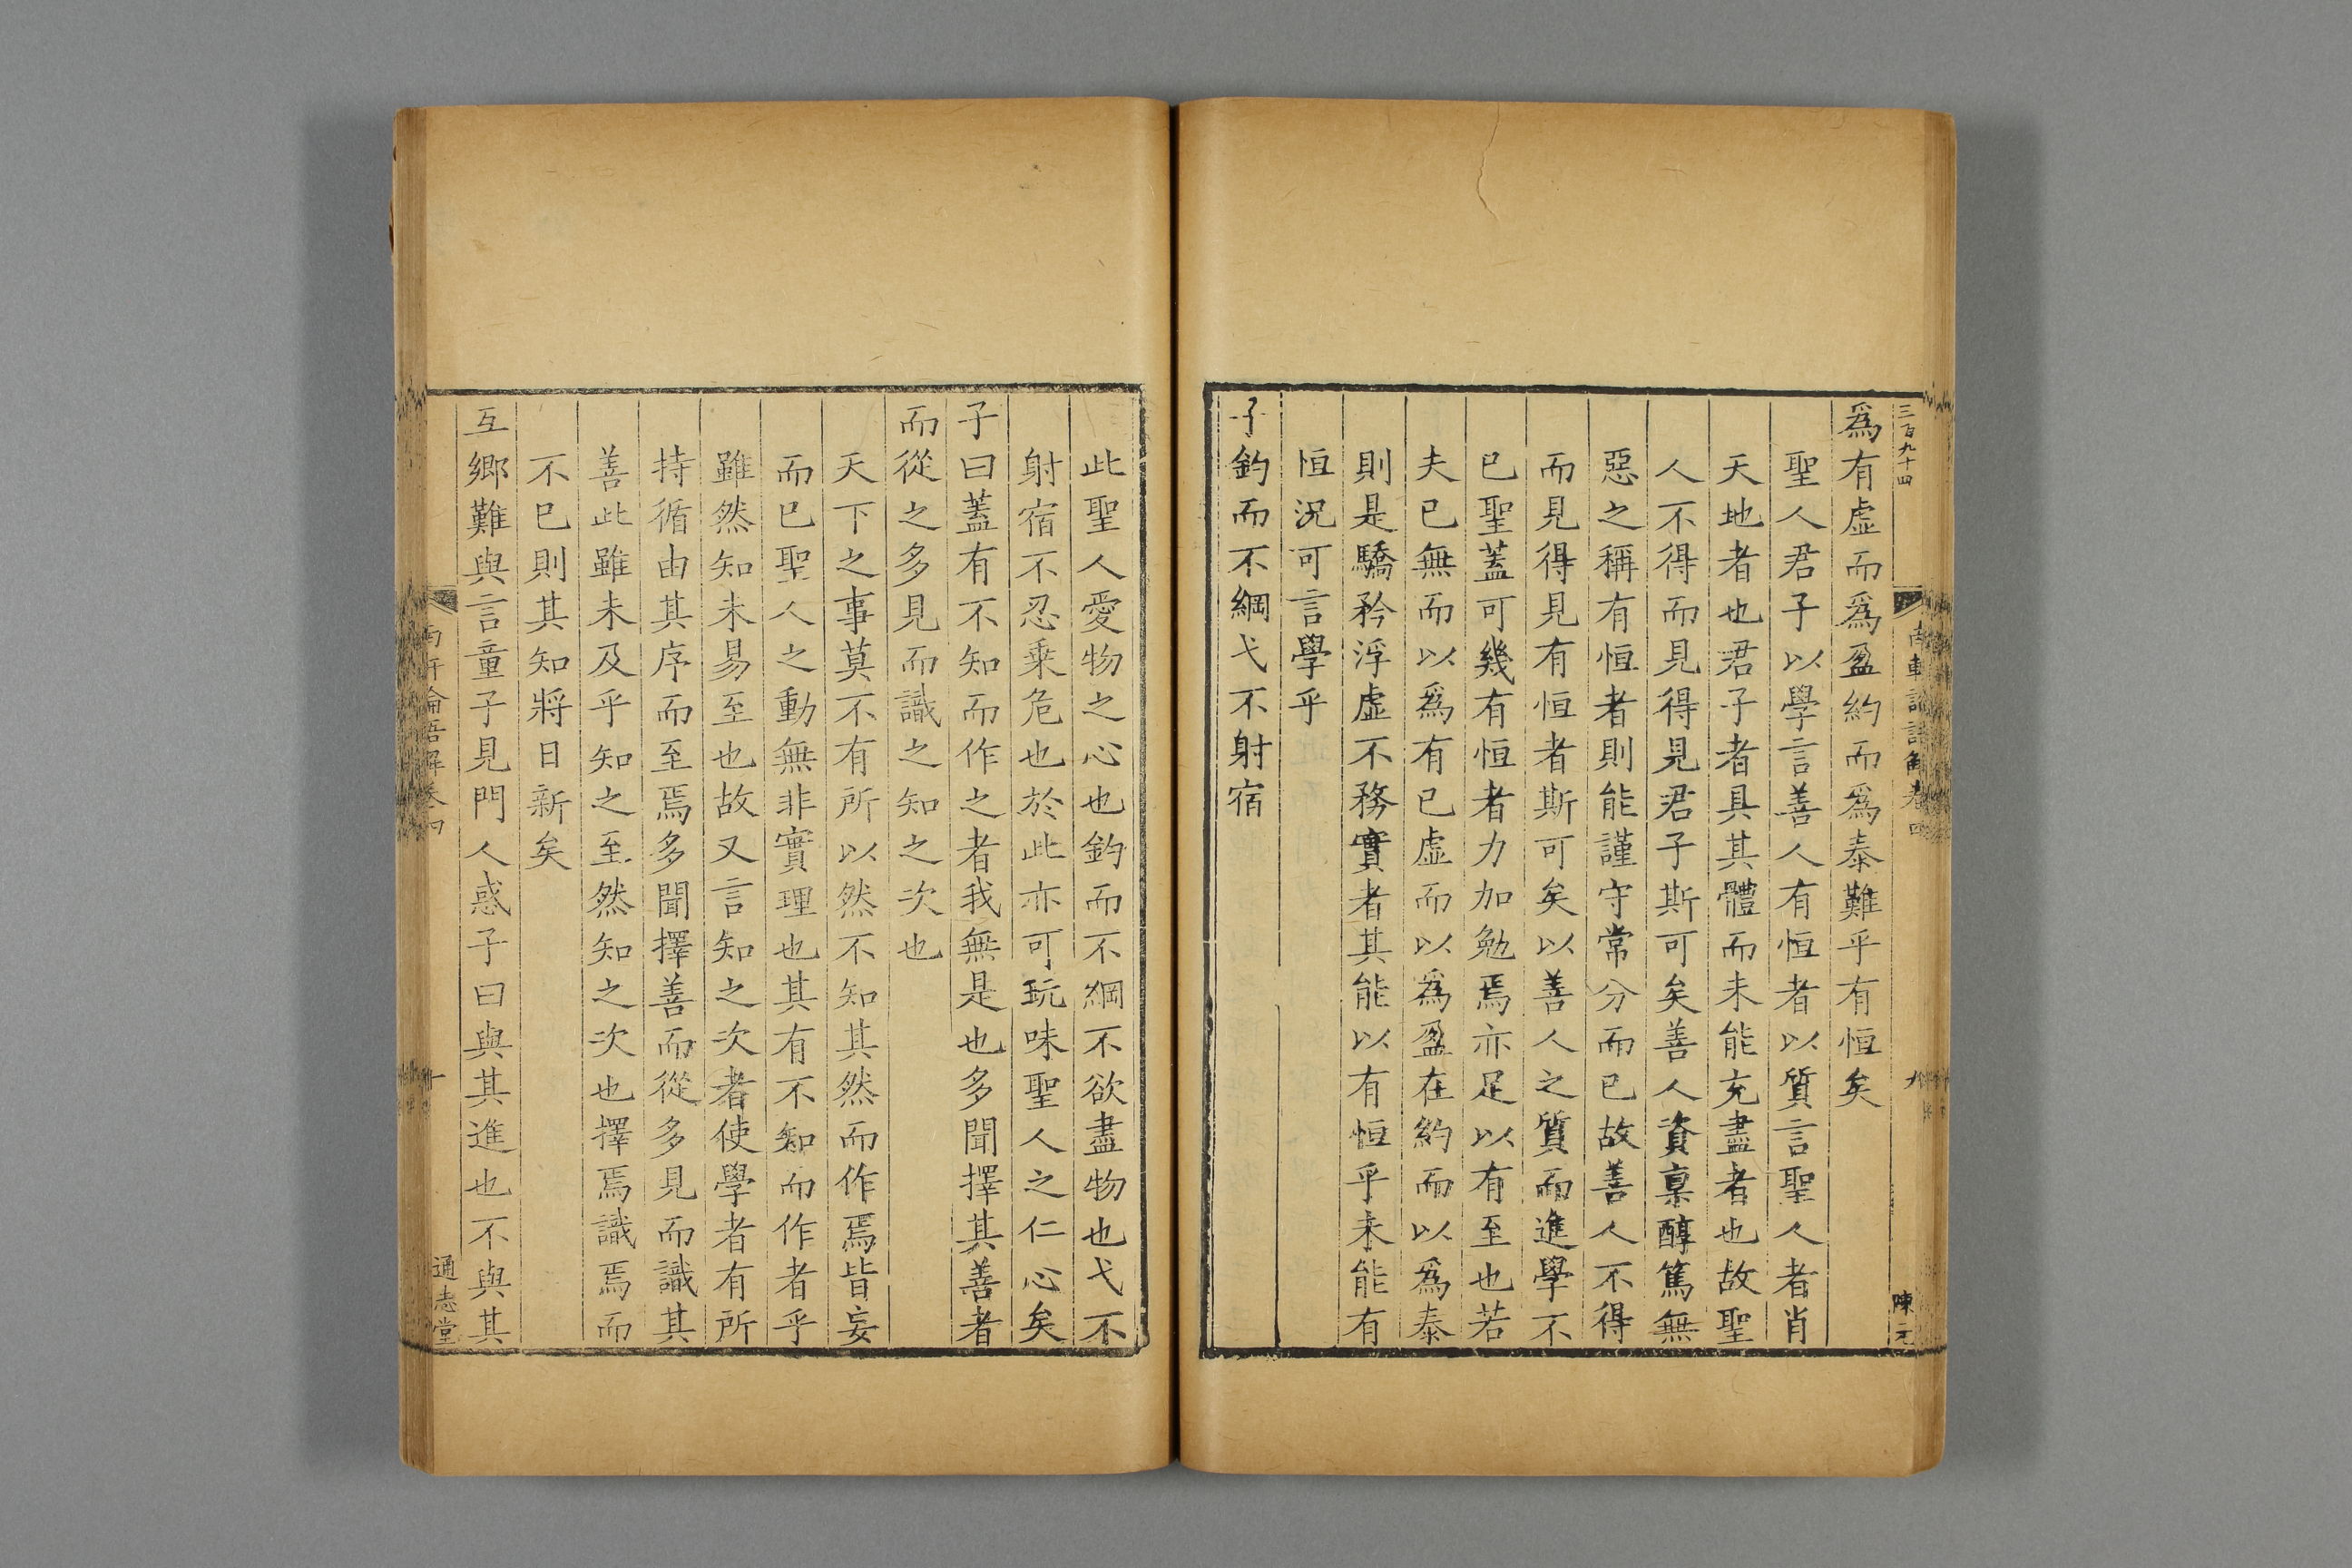 三百九十四
南軒論語解卷四
九
陳元
爲有虚而爲盈約而爲泰難乎有恒矣
聖人君子以學言善人有恒者以質言聖人者肖
天地者也君子者具其體而未能充盡者也故聖
人不得而見得見君子斯可矣善人資稟醇篤無
惡之稱有恒者則能謹守常分而已故善人不得
而見得見有恒者斯可矣以善人之質而進學不
已聖蓋可幾有恒者力加勉焉亦足以有至也若
夫已無而以爲有已虚而以爲盈在約而以爲泰
則是驕矜浮虚不務實者其能以有恒乎未能有
恒况可言學乎
子釣而不綱弋不射宿
此聖人愛物之心也釣而不綱不欲盡物也弋不
射宿不忍乘危也於此亦可玩味聖人之仁心矣
子曰蓋有不知而作之者我無是也多聞擇其善者
而從之多見而識之知之次也
天下之事莫不有所以然不知其然而作焉皆妄
而已聖人之動無非實理也其有不知而作者乎
雖然知未易至也故又言知之次者使學者有所
持循由其序而至焉多聞擇善而從多見而識其
善此雖未及乎知之至然知之次也擇焉識焉而
不已則其知將日新矣
互鄉難與言童子見門人惑子曰與其進也不與其
南軒論語解卷四
十
通志堂